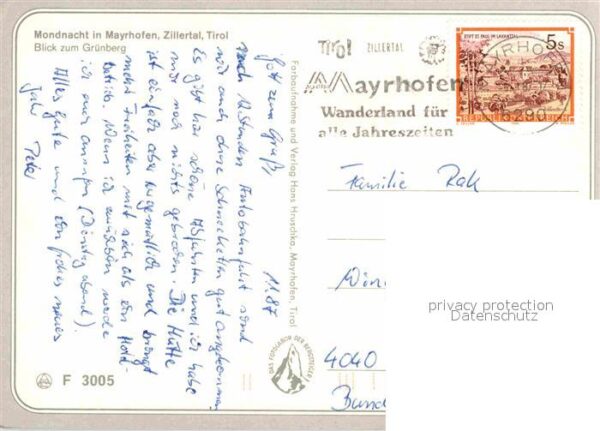 Mondnacht in Mayrhofen, Zillertal, Tirol
Blick zum Grünberg
Gott zum Gruß,
1.1.87
nach 12 Stunden Autobahnfahrt sind
wir auch ohne Schneeketten gut angekommen
Es gibt hier schöne Abfahrten und ich habe
mir noch nichts gebrochen. Die Hütte
ist einfach aber urgemütlich und bringt
mehr Freiheiten mit sich als ein Hotel-
betrieb. Wenn ich
ich euer (Dienstag abend).
Alles gute und ein frohes neues
Jahr Peter
F 3005
Farbaufnahme und Verlag Hans Hruschka, Mayrhofen, Tirol
DAS FUNDAMENT DER BERGSTEIGER
Tirol ZILLERTAL
Mayrhofen
Wanderland für
alle Jahreszeiten
MAYRHOFEN
6290
STIFT ST. PAUL IM LAVANTTAL
5s
REPUBLIK ÖSTERREICH
Familie Rak
4040
privacy protection
Datenschutz